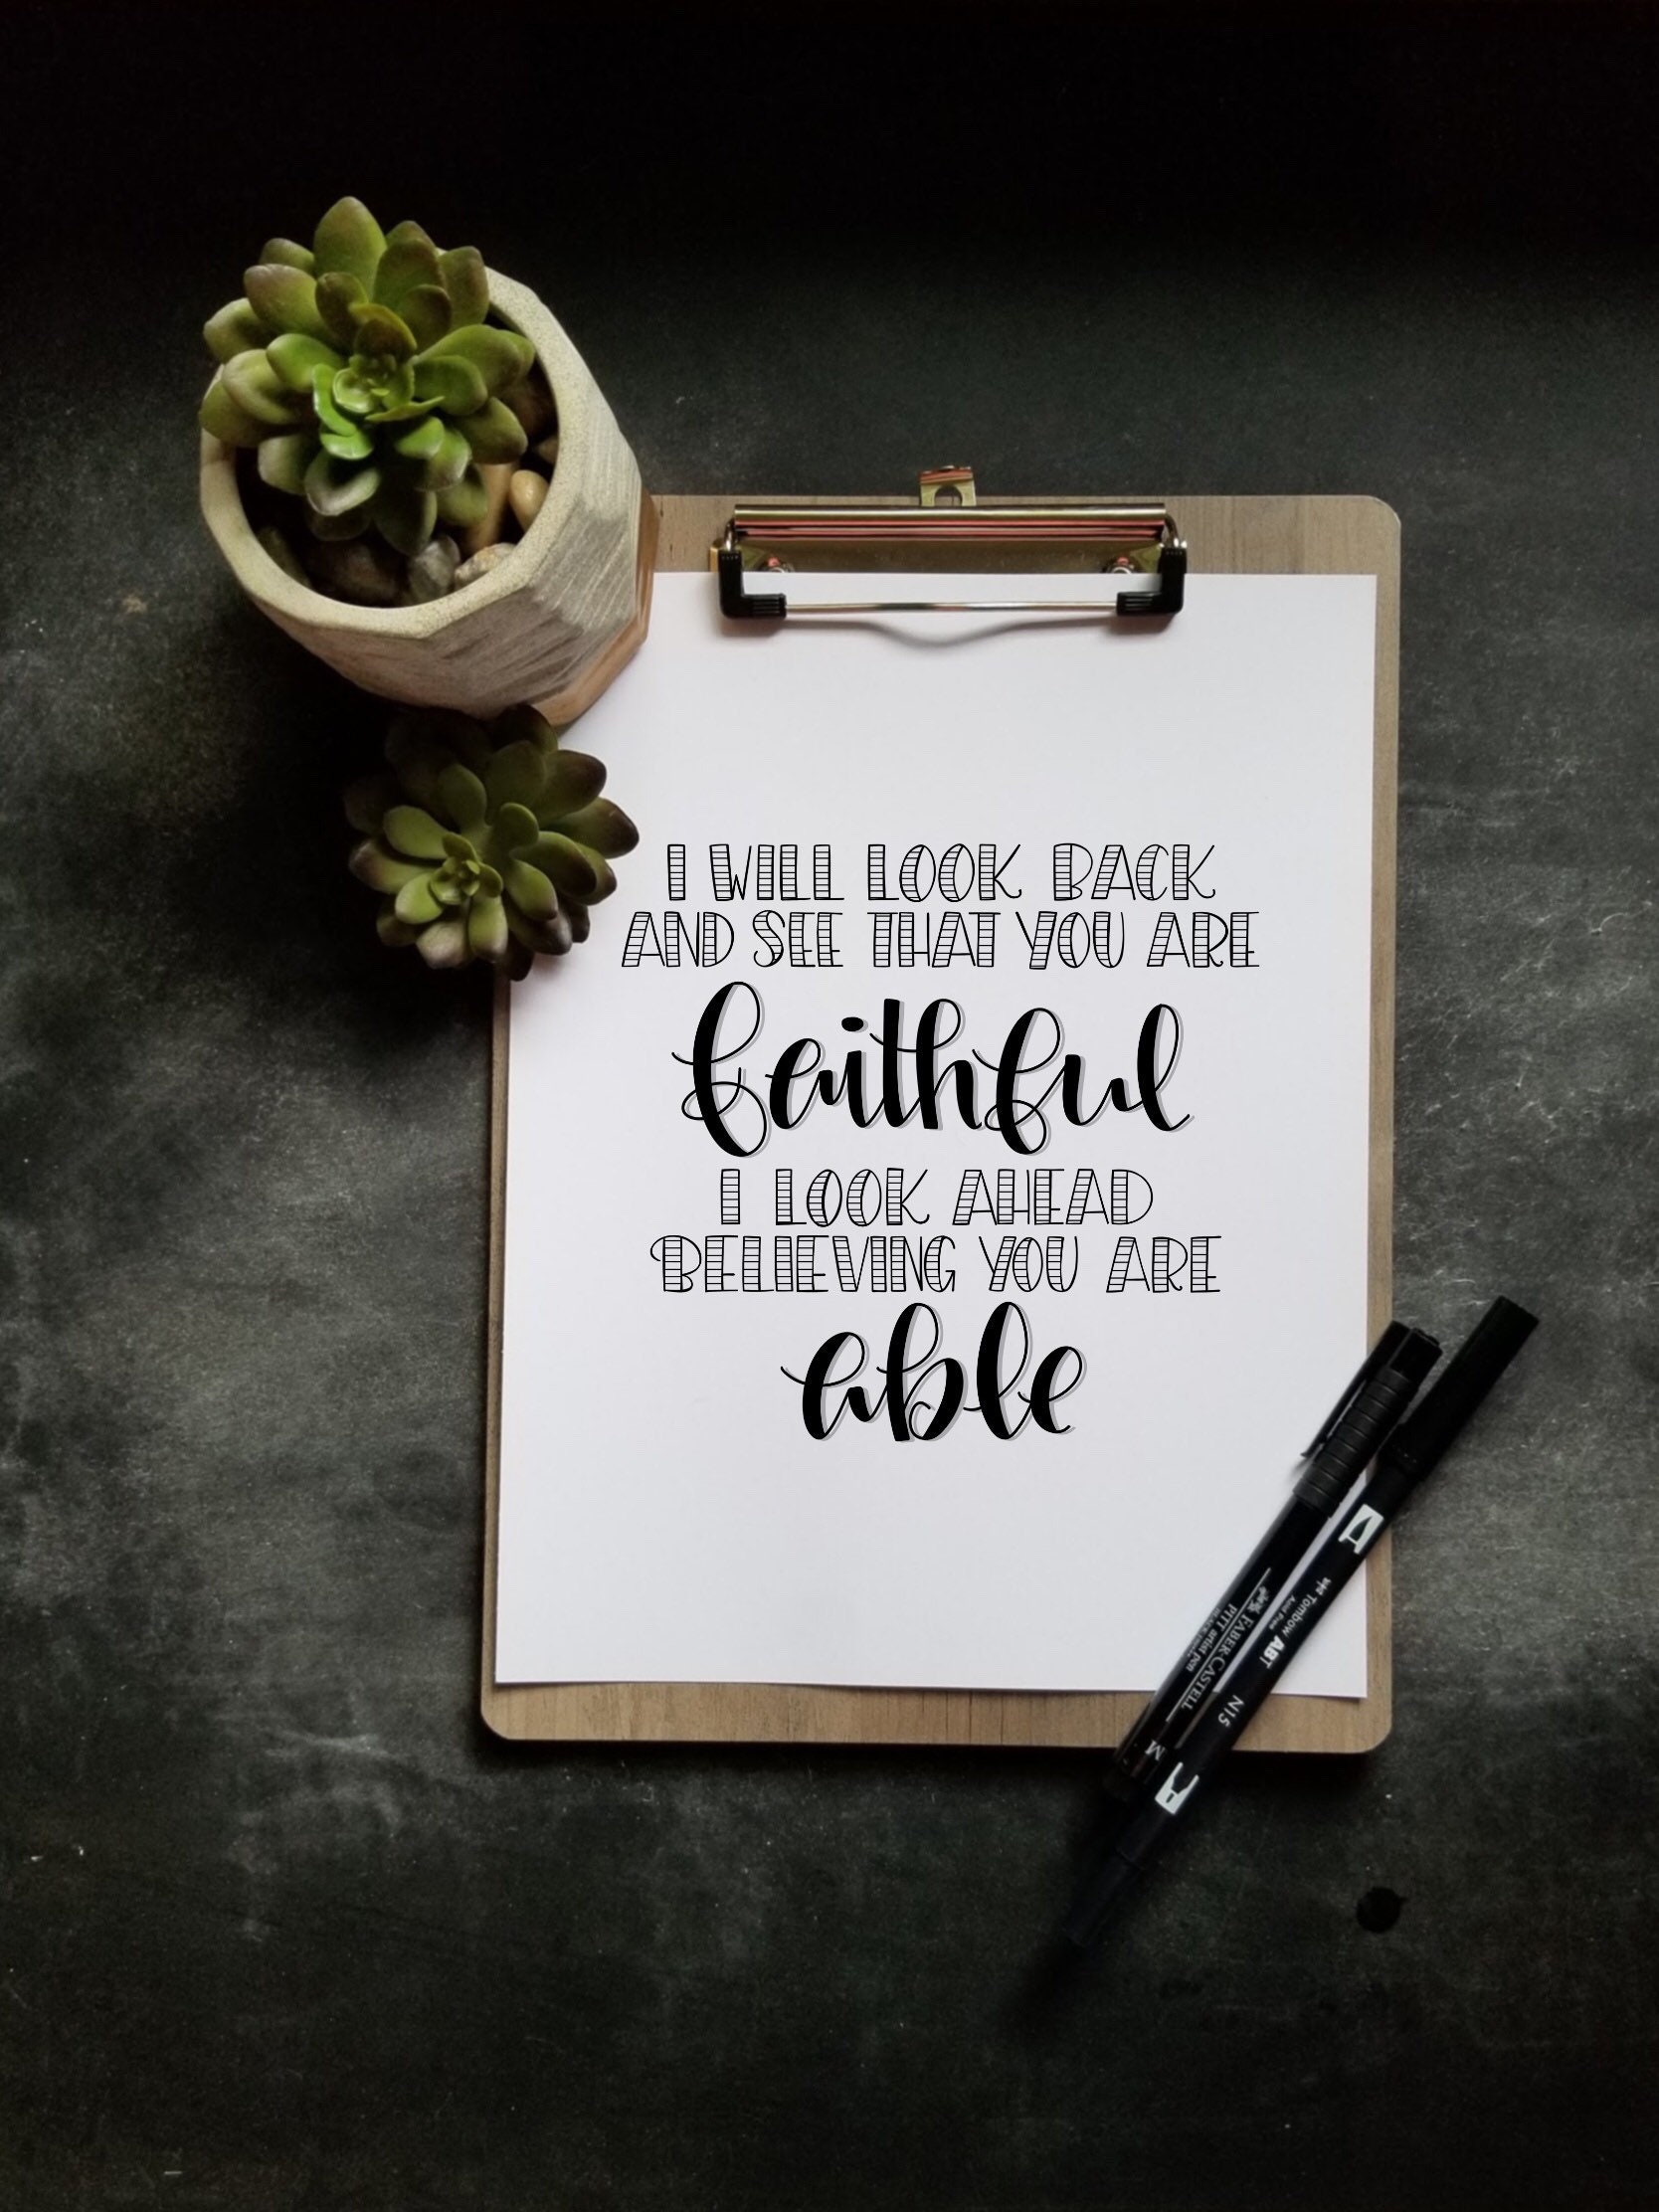 I WILL LOOK BACK
AND SEE THAT YOU ARE
faithful
I LOOK AHEAD
BELIEVING YOU ARE
able
FABER-CASTELL
PITT artist pen
M
Tombow ABT
N15